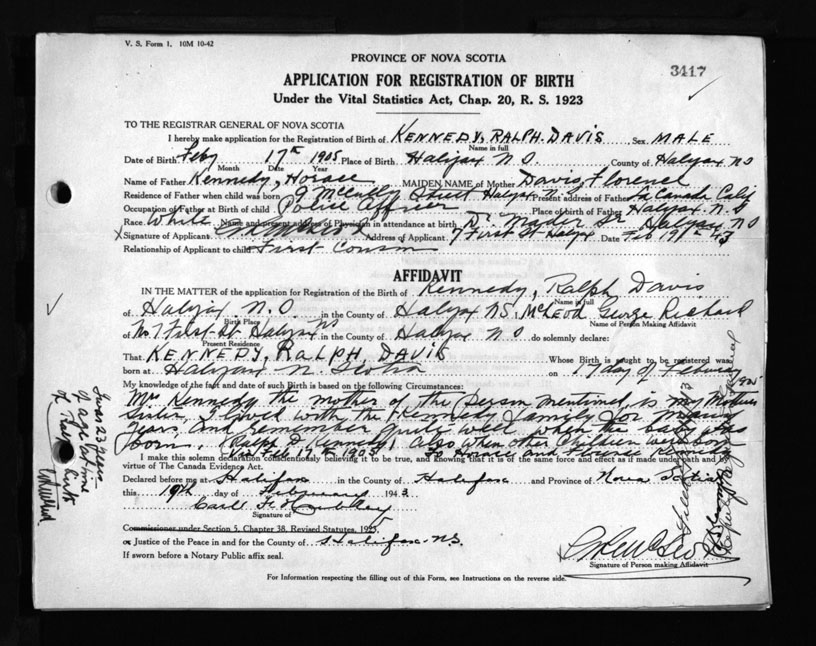 V. S. Form 1. 10M 10-42
3417
PROVINCE OF NOVA SCOTIA
APPLICATION FOR REGISTRATION OF BIRTH
Under the Vital Statistics Act, Chap. 20, R. S. 1923
TO THE REGISTRAR GENERAL OF NOVA SCOTIA
I hereby make application for the Registration of Birth of KENNEDY, RALPH DAVIS, Sex MALE
Name in full
Date of Birth Feby 17th 1905 Place of Birth Halifax N.S. County of Halifax NS
Month Date Year
Name of Father Kennedy, Horace MAIDEN NAME of Mother Davis, Florence
Residence of Father when child was born 9 McCully Street Halifax N.S. Present address of Father La Canada Calif
Occupation of Father at Birth of child Police Officer Place of birth of Father Halifax N.S
Race White Name and present address of Physician in attendance at birth Dr. Mader Sr Halifax NS
x Signature of Applicant Address of Applicant 7 First St Halfx. Date Feb 19th 43
Relationship of Applicant to child First Cousin
AFFIDAVIT
IN THE MATTER of the application for Registration of the Birth of Kennedy, Ralph Davis
Name in full
of Halifax N.S in the County of Halifax NS, McLeod George Richard
Birth Place Name of Person Making Affidavit
of No 7 First St Halifax NS in the County of Halifax NS do solemnly declare:
Present Residence
That KENNEDY, RALPH DAVIS Whose Birth is sought to be registered was
born at Halifax N. Scotia on 17 day of February 1905
My knowledge of the fact and date of such Birth is based on the following Circumstances:
Mrs Kennedy the mother of the person mentioned, is my Mothers
Sister, I lived with the Kennedy family for many
years and remember quite well when the baby was
born, (Ralph D Kennedy) also when other children were born
viz Feb 17th 1905 to Horace and Florence Kennedy
I make this solemn declaration conscientiously believing it to be true, and knowing that it is of the same force and effect as if made under oath and by
virtue of The Canada Evidence Act.
Declared before me at Halifax in the County of Halifax and Province of Nova Scotia
this 19th day of February 1943
Carl F.
Signature of
Commissioner under Section 5, Chapter 38, Revised Statutes, 1923,
or Justice of the Peace in and for the County of Halifax NS.
If sworn before a Notary Public affix seal.
Signature of Person making Affidavit
For Information respecting the filling out of this Form, see Instructions on the reverse side.
I was 23 years
of age at time
of birth